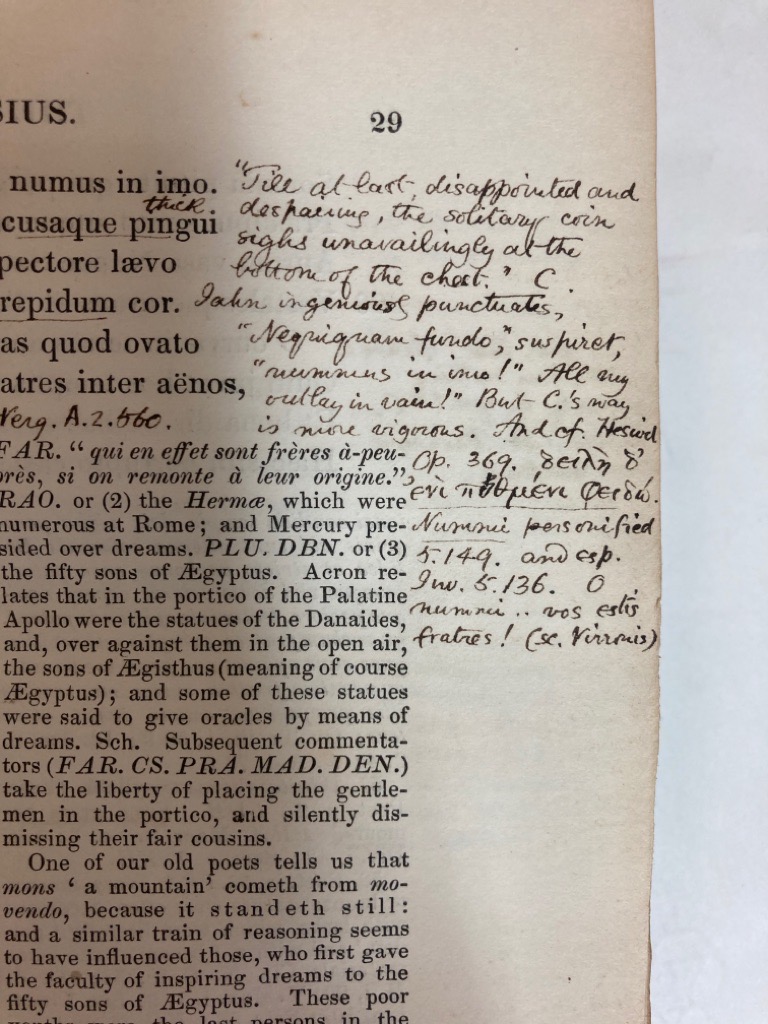 SIUS.
29
numus in imo.
thick
cusaque pingui
pectore lævo
repidum cor.
as quod ovato
atres inter aënos,
Verg. A.2.560.
"Till at last, disappointed and
despairing, the solitary coin
sighs unavailingly at the
bottom of the chest." C.
Jahn ingeniously punctuates,
"Nequiquam fundo," suspiret,
"nummus in imo!" All my
outlay in vain!" But C.'s way
is more vigorous. And cf. Hesiod
Op. 369. δειλὴ δ'
ἐνὶ πυθμένι φειδώ.
Nummi personified
5.149. and esp.
Juv. 5.136. O
nummi .. vos estis
fratres! (sc. Virronis)
FAR. "qui en effet sont frères à-peu-
près, si on remonte à leur origine."
RAO. or (2) the Hermæ, which were
numerous at Rome; and Mercury pre-
sided over dreams. PLU. DBN. or (3)
the fifty sons of Ægyptus. Acron re-
lates that in the portico of the Palatine
Apollo were the statues of the Danaides,
and, over against them in the open air,
the sons of Ægisthus (meaning of course
Ægyptus); and some of these statues
were said to give oracles by means of
dreams. Sch. Subsequent commenta-
tors (FAR. CS. PRA. MAD. DEN.)
take the liberty of placing the gentle-
men in the portico, and silently dis-
missing their fair cousins.
One of our old poets tells us that
mons ' a mountain' cometh from mo-
vendo, because it standeth still:
and a similar train of reasoning seems
to have influenced those, who first gave
the faculty of inspiring dreams to the
fifty sons of Ægyptus. These poor
youths were the last persons in the